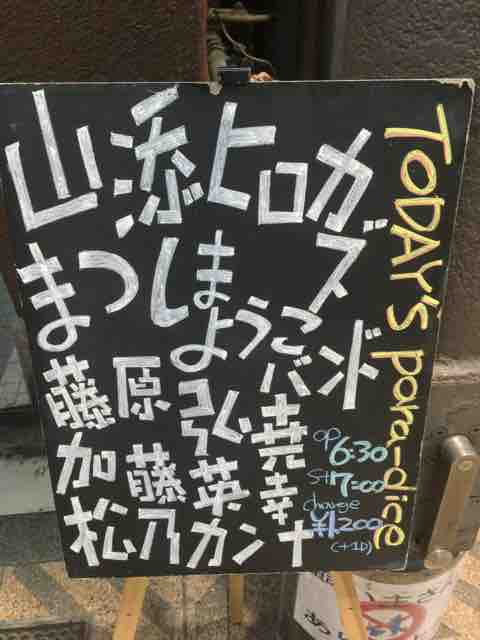 山添ヒロカズ
まつしまようこバンド
藤原弘尭
加藤英幸
松乃カンナ
TODAY'S para-dice
op 6:30
st 7:00
charge
¥1,200
(+1D)